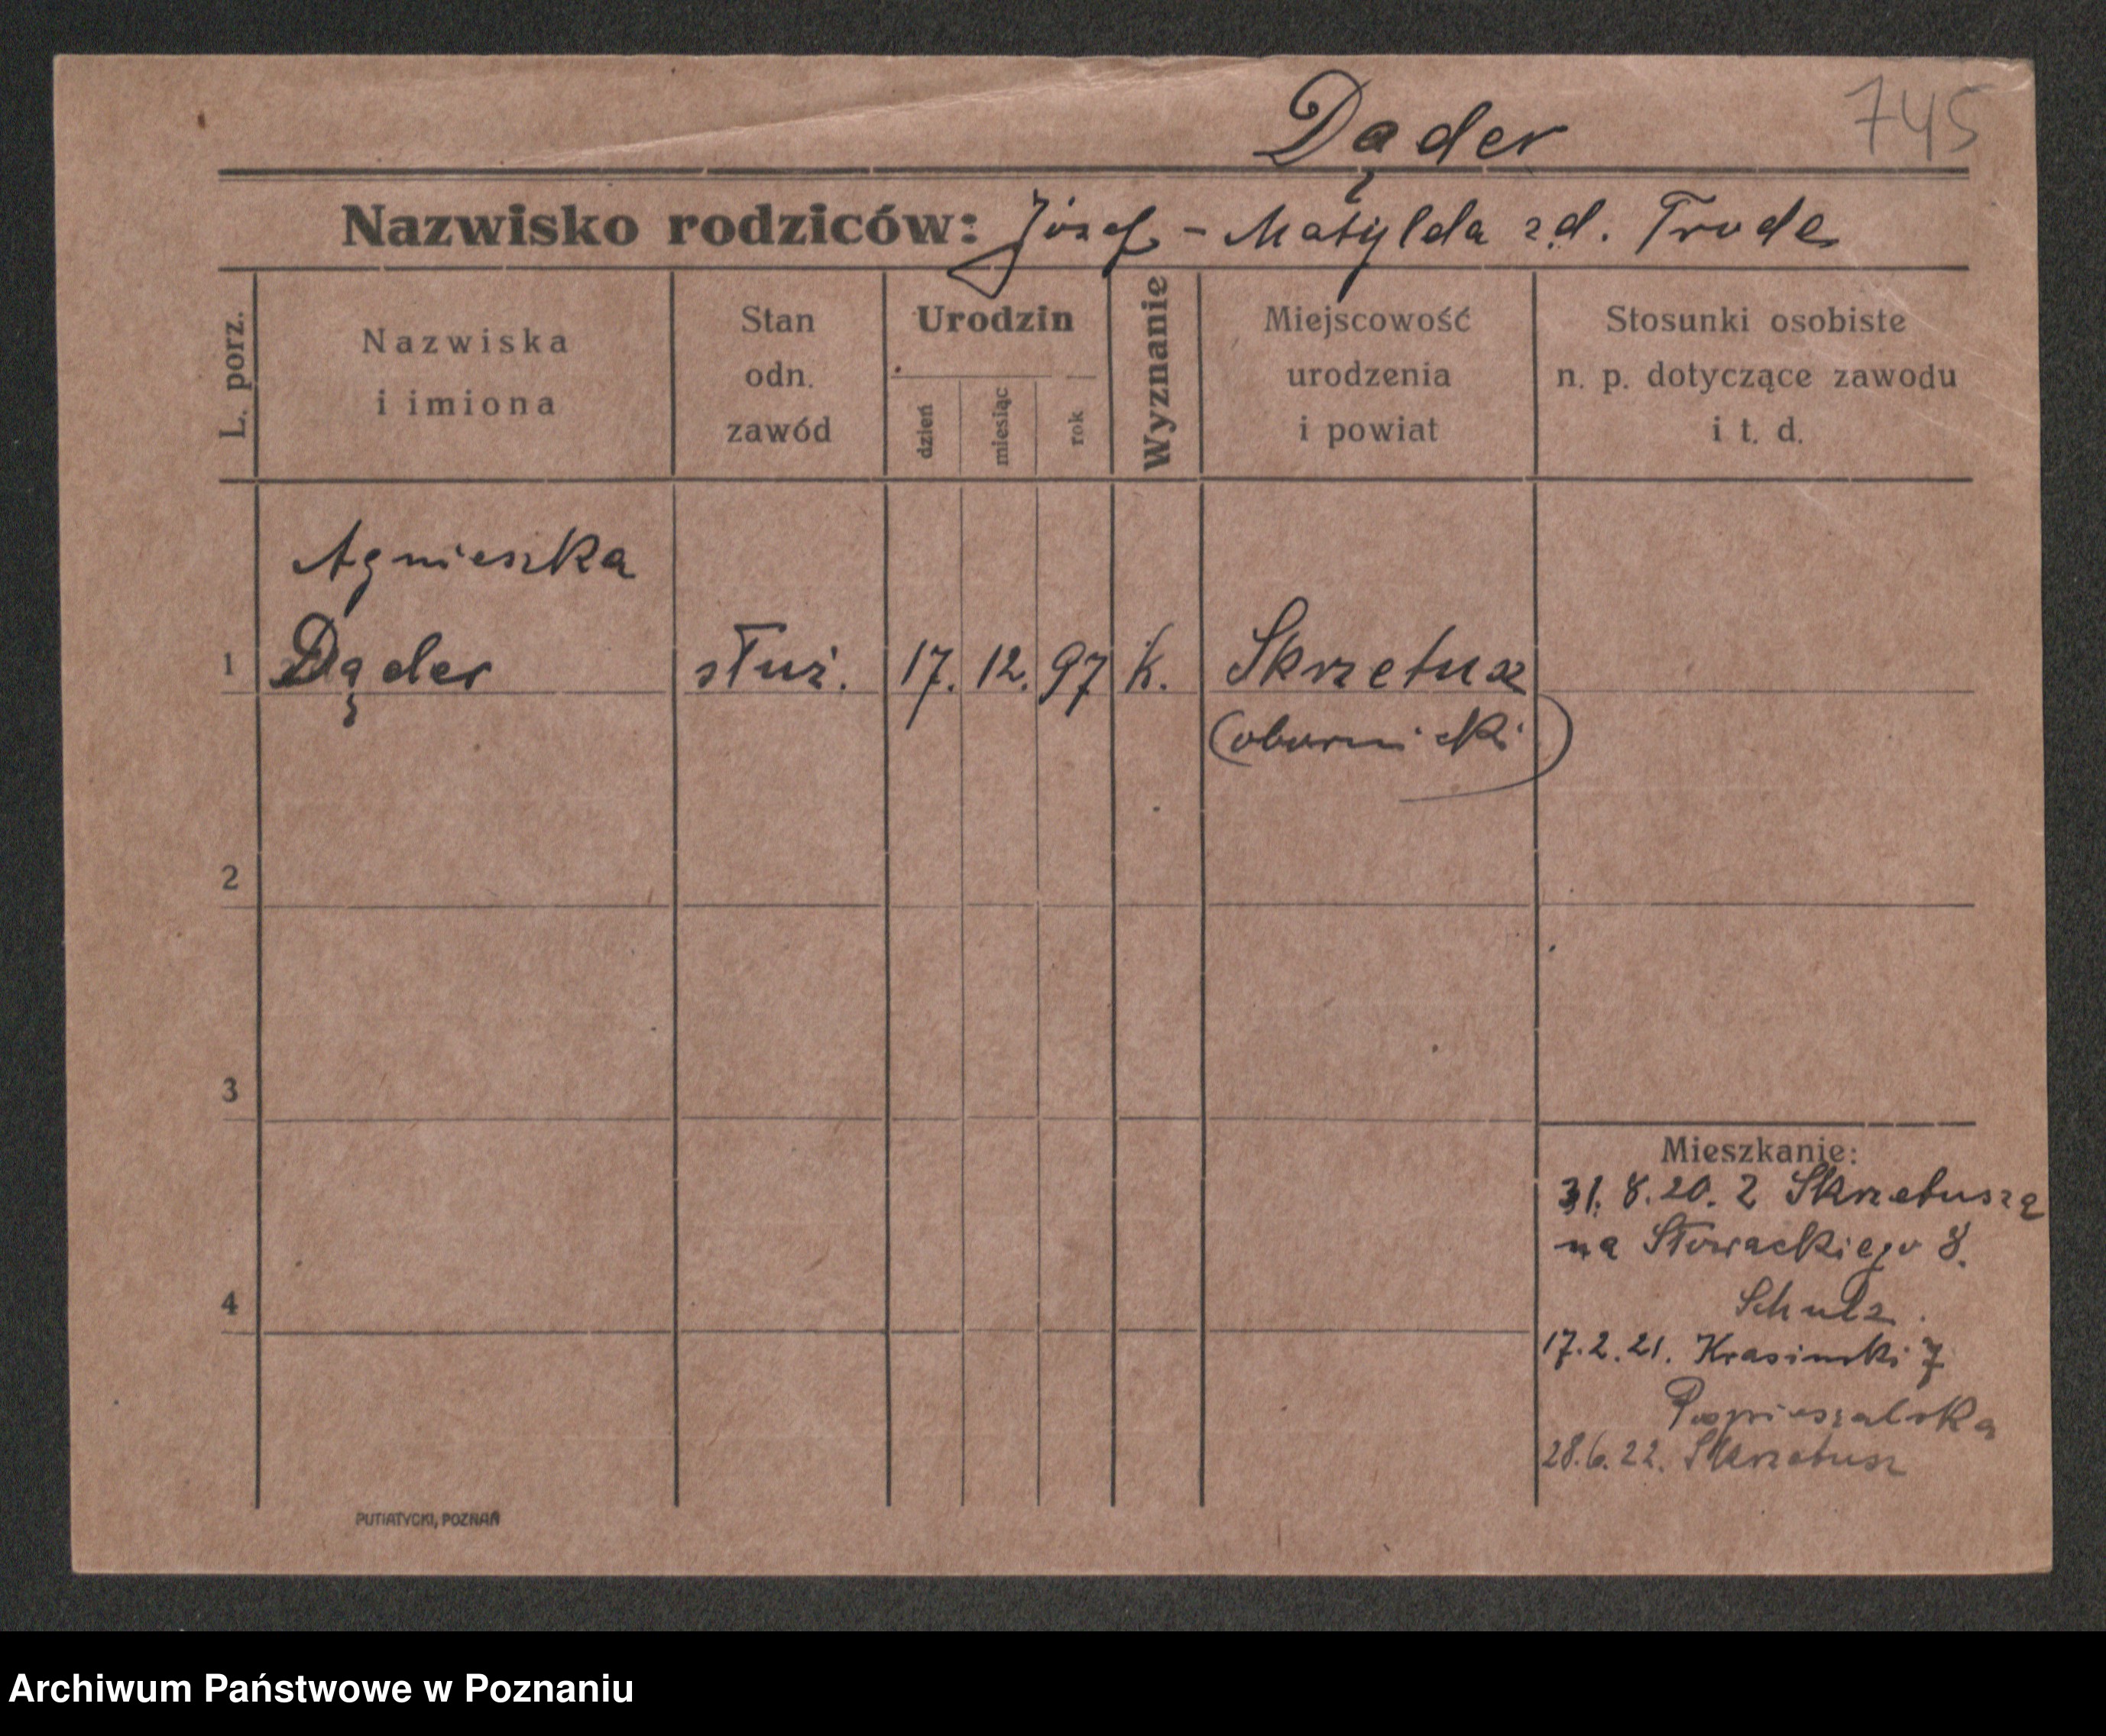 745
Dąder
Nazwisko rodziców: Józef - Matylda zd. Trode
L. porz.
Nazwiska
i imiona
Stan
odn.
zawód
Urodzin
dzień
miesiąc
rok
Wyznanie
Miejscowość
urodzenia
i powiat
Stosunki osobiste
n. p. dotyczące zawodu
i t. d.
Agnieszka
1 Dąder służ. 17. 12. 97 k. Skrzetusz
(obornicki)
2
3
4
Mieszkanie:
31. 8. 20. Z Skrzetusza
na Słowackiego 8.
Schulz.
17. 2. 21. Krasiński 7
Pospieszalska
28. 6. 22. Skrzetusz
PUTIATYCKI, POZNAŃ
Archiwum Państwowe w Poznaniu